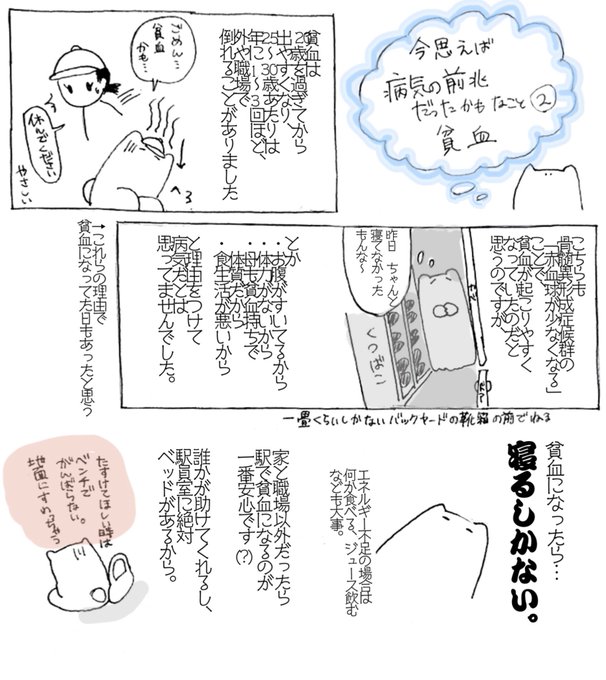 今思えば
病気の前兆
だったかもなこと②
貧血
貧血は
20歳を過ぎてから
出やすくなり、
25～30歳あたりは
年に1～3回ほど、
外や職場で
倒れることがありました
ごめん…
貧血
かも…
休んでください
やさしい
へろ
こちらも
骨髄異形成症候群の
「赤血球が少なくなる」
ことで、
貧血が起こりやすく
なっていたのだと
思うのですが、
昨日 ちゃんと
寝てなかった
もんな～
くつばこ
ドア
とか
・お腹がすいてるから
・体力がないから
・母も貧血持ちで
体質だから
・食生活が悪いから
と理由をつけて
病気だとは
思ってませんでした。
→これらの理由で
貧血になってた日もあったと思う
一畳くらいしかないバックヤードの靴箱の前でねる
貧血になったら…
寝るしかない。
エネルギー不足の場合は
何か食べる、ジュース飲む
なども大事。
家と職場以外だったら
駅で貧血になるのが
一番安心です(?)
誰かが助けてくれるし、
駅員室に絶対
ベッドがあるから。
たすけてほしい時は
ベンチで
がんばらない。
地面にすわっちゃう